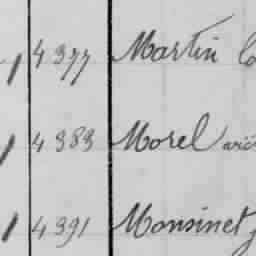 4377 Martin
4383 Morel
4391 Monsinet